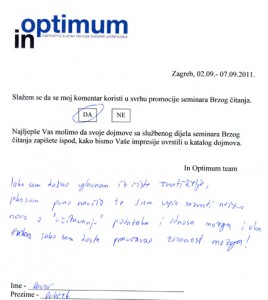 in optimum
Zagreb, 02.09.- 07.09.2011.
Slažem se da se moj komentar koristi u svrhu promocije seminara Brzog čitanja.
DA NE
Najljepše Vas molimo da svoje dojmove sa službenog dijela seminara Brzog
čitanja zapišete ispod, kako bismo Vaše impresije uvrstili u katalog dojmova.
In Optimum team
Iako sam došao glavnom iz čiste znatiželje,
jako sam puno naučio te sam uspio saznati nešto
novo o "učitavanju" podataka i odnosa mozga i oka
jako sam dosta mozga!
Ime -
Prezime -